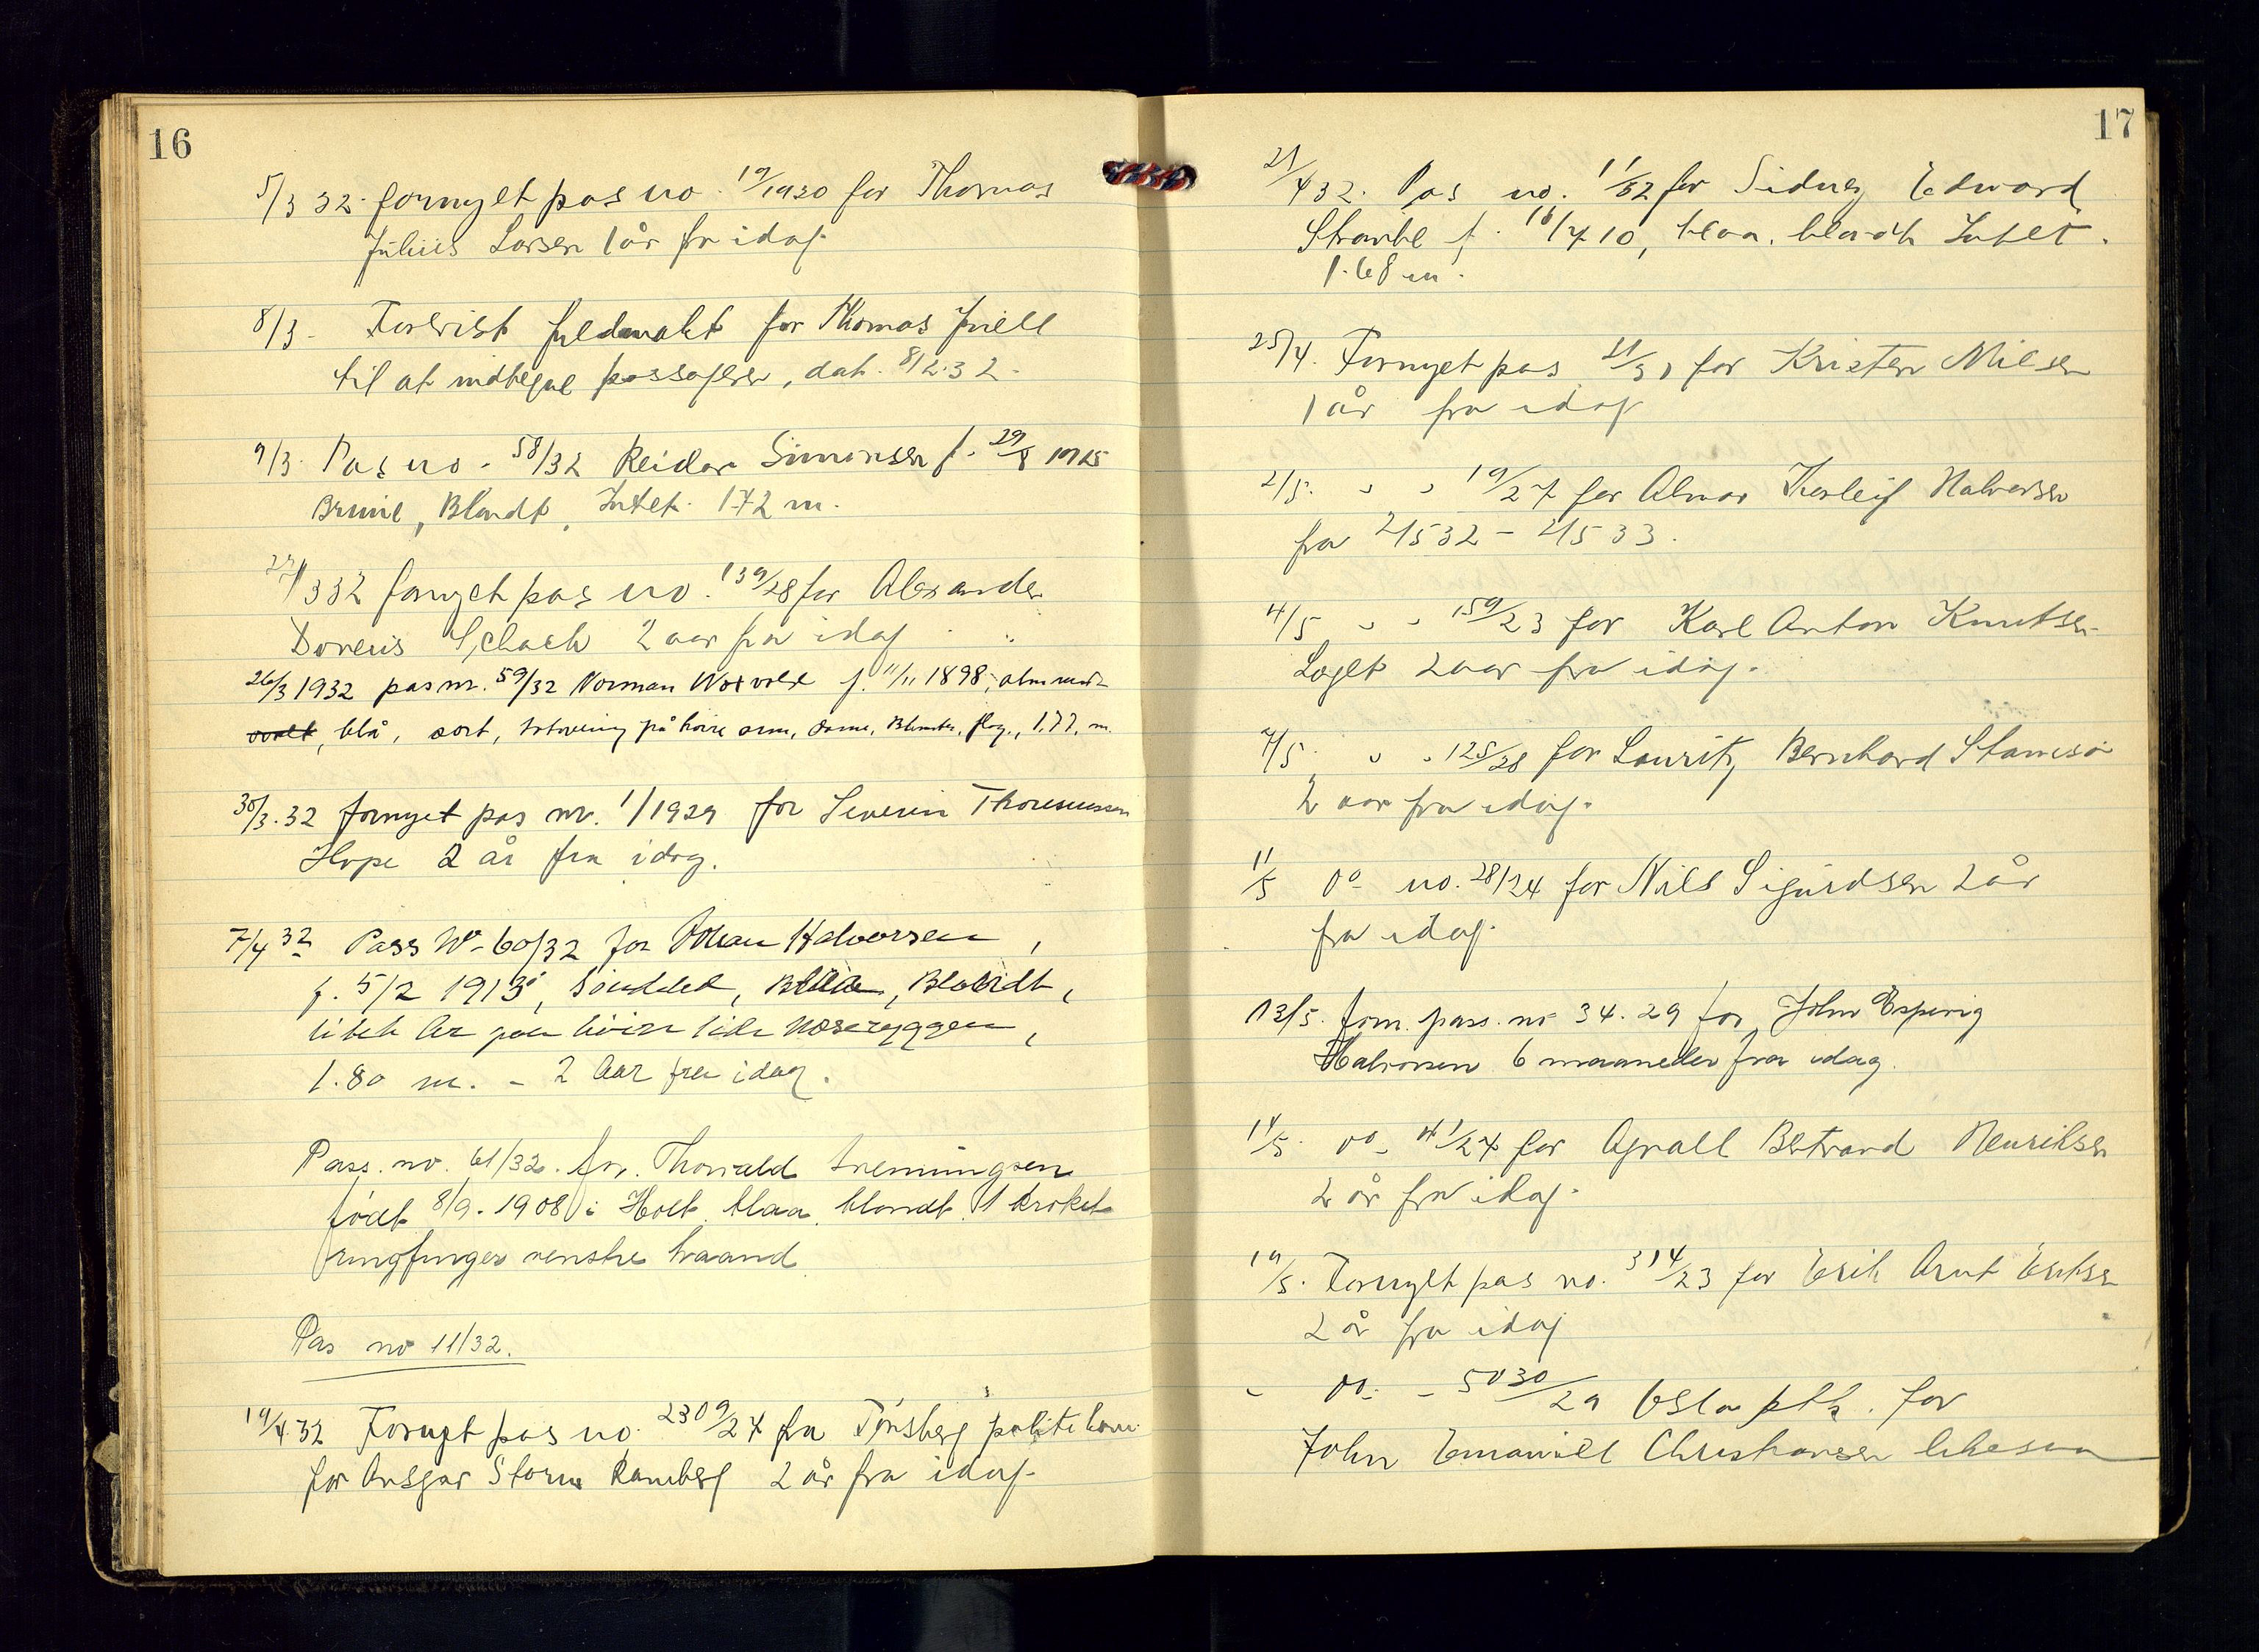 16
5/3 32. fornyet pas no. 19/1930 for Thomas
Julius Larsen 1 år fra idag.
8/3. Forevist fuldmakt for Thomas
til at indtegne passagerer, dat. 8/2.32.
9/3. Pas no. 58/32 Reidar Simonsen f. 29/8 1915
Brune, Blondt, Intet. 1.72 m.
332 fornyet pas no. 139/28 for Alexander
Schach 2 aar fra idag
26/3 1932 pas nr. 59/32 Norman f. 11/11 1898,
blå, sort, tatovering på høire arm, dame, Blomster, flag., 1.77. m.
30/3.32 fornyet pas nr. 1/1929 for Severin Thomassen
Hope 2 år fra idag.
7/4 32 Pass No 60/32 for Johan Halvorsen,
f. 5/2 1913, Søndeled, Blaa, Blondt,
litet ar paa høire side næseryggen,
1.80 m. - 2 Aar fra idag.
Pass. no. 61/32. for Thorvald
født 8/9. 1908 i Holt. blaa. blondt. 1 kroket
ringfinger venstre haand
Pas no 11/32.
19/4 32 Fornyet pas no. 2309/27 fra Tønsberg politikam
for Ansgar Storm Ramberg 2 år fra idag.
17
21/4 32. Pas no. 11/32 for Sidney Edward
f. 16/7 10, blaa. blondt Intet.
1.68 m.
25/4. Fornyet pas 21/31 for Kristen Nilsen
1 år fra idag
2/5. " " 19/27 for Almar Halvorsen
fra 2/5 32 - 2/5 33.
4/5 " " 159/23 for Karl Anton Knutsen
2 aar fra idag.
7/5. " " 125/28 for Lauritz Bernhard
2 aar fra idag.
11/5 Do no. 28/24 for Nils Sigurdsen 2 år
fra idag.
13/5. forn. pass. no 34. 29 for John Esping
Halvorsen 6 maaneder fra idag.
14/5. Do - 41/27 for Agvall Bertrand Henriksen
2 år fra idag.
19/5. Fornyet pas no. 314/23 for Erik Arnt Eriksen
2 år fra idag
" Do - " 5030/29 Oslo ptk. for
John Emanuel Christiansen